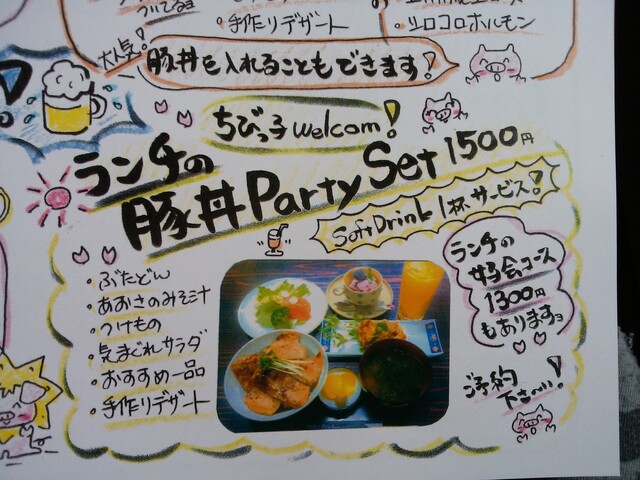 ・手作りデザート
大人気!
豚丼を入れることもできます!
ちびっ子welcom!
ランチの
豚丼Party Set 1500円
Soft Drink 1杯サービス!
・ぶたどん
・あおさのみそ汁
・つけもの
・気まぐれサラダ
・おすすめ一品
・手作りデザート
ランチの
女子会コース
1300円
もありますョ
ご予約
下さい!